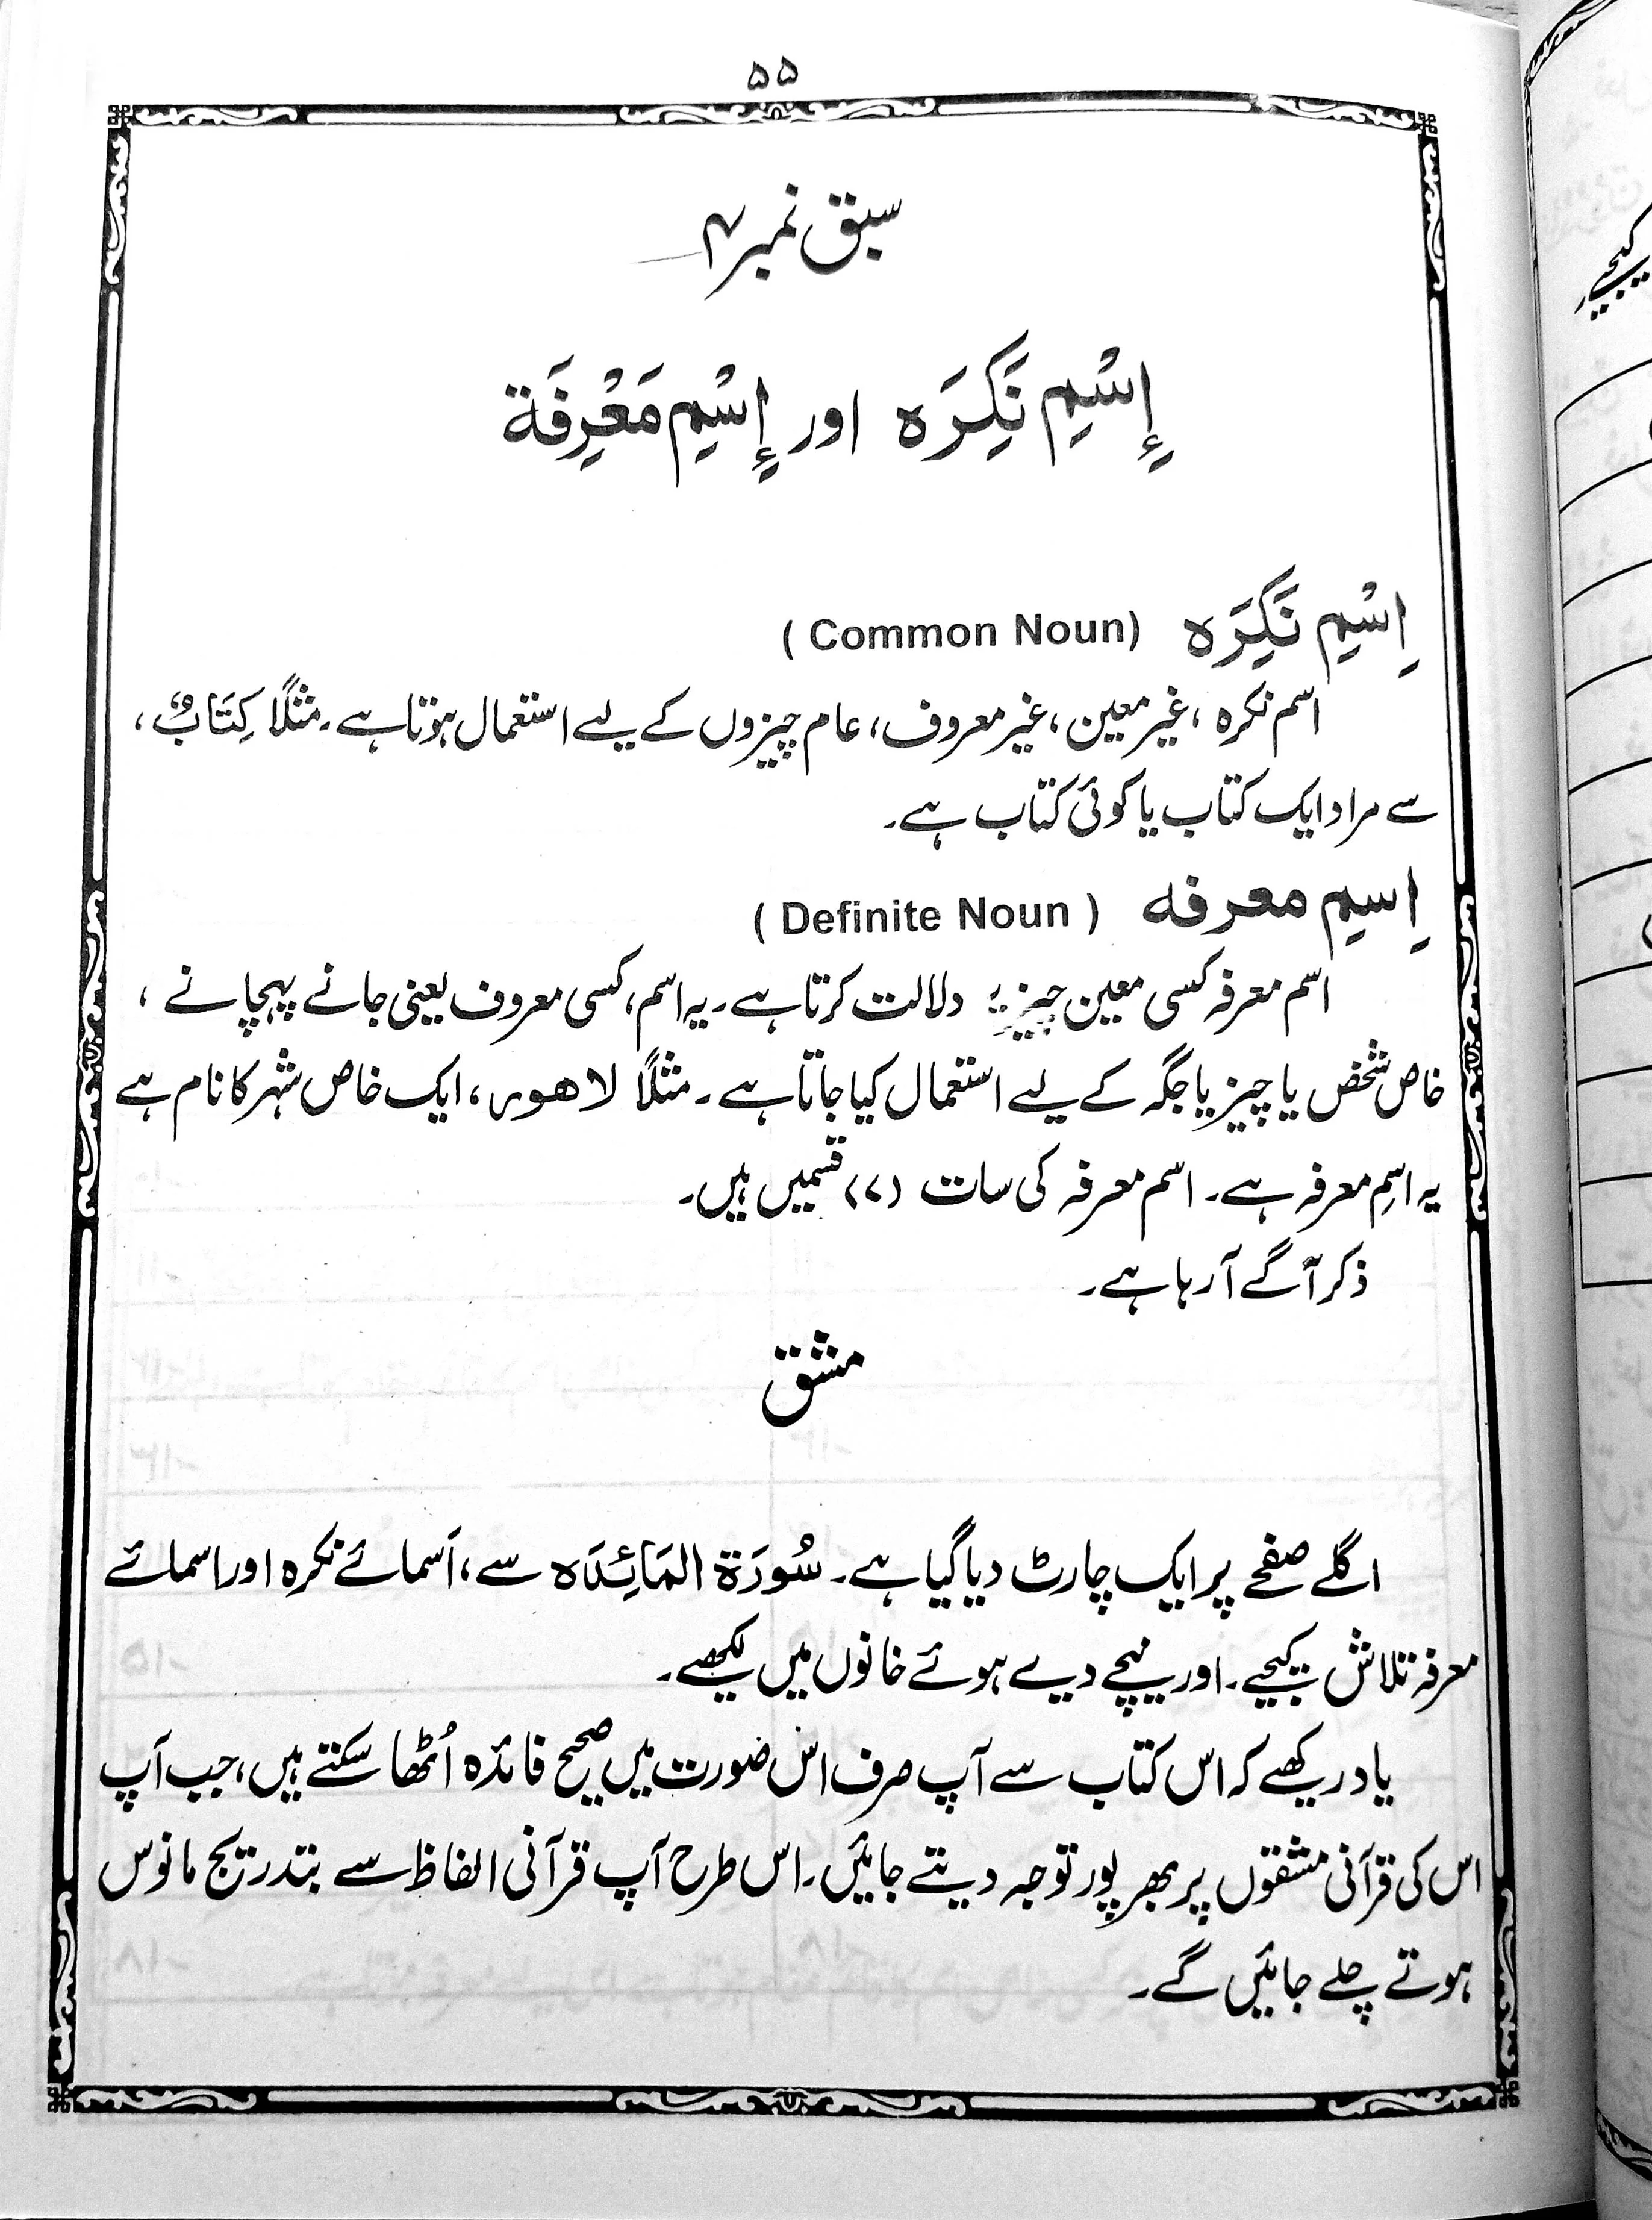 ۵۵
سبق نمبر ۴
إِسْمِ نَكِرَہ اور إِسْمِ مَعْرِفَة
اِسْمِ نَكِرَہ (Common Noun)
اسم نکرہ ، غیر معین ، غیر معروف ، عام چیزوں کے لیے استعمال ہوتا ہے ۔ مثلًا كِتَابٌ ،
سے مراد ایک کتاب یا کوئی کتاب ہے ۔
اِسمِ معرفہ (Definite Noun)
اسم معرفہ کسی معین چیز پر دلالت کرتا ہے ۔ یہ اسم ، کسی معروف یعنی جانے پہچانے ،
خاص شخص یا چیز یا جگہ کے لیے استعمال کیا جاتا ہے ۔ مثلًا لاھور ، ایک خاص شہر کا نام ہے
یہ اسمِ معرفہ ہے ۔ اسم معرفہ کی سات (۷) قسمیں ہیں ۔
ذکر آگے آ رہا ہے ۔
مشق
اگلے صفحے پر ایک چارٹ دیا گیا ہے ۔ سُورَة المَائِدَہ سے ، اَسمائے نکرہ اور اسمائے
معرفہ تلاش کیجیے ۔ اور نیچے دیے ہوئے خانوں میں لکھیے ۔
یاد رکھیے کہ اس کتاب سے آپ صرف اس صورت میں صحیح فائدہ اُٹھا سکتے ہیں ، جب آپ
اس کی قرآنی مشقوں پر بھر پور توجہ دیتے جائیں ۔ اس طرح آپ قرآنی الفاظ سے بتدریج مانوس
ہوتے چلے جائیں گے ۔
کیجیے